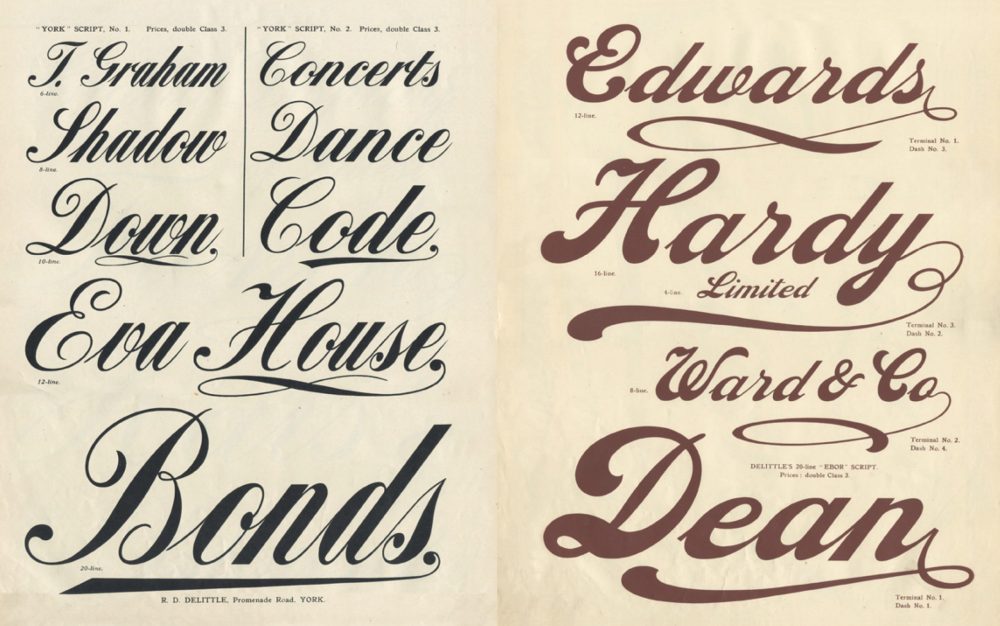 "YORK" SCRIPT, No. 1. Prices, double Class 3.
T. Graham
6-line.
Shadow
8-line.
Down.
10-line.
"YORK" SCRIPT, No. 2. Prices, double Class 3.
Concerts
Dance
Code.
Eva House.
12-line.
Bonds.
20-line.
R. D. DELITTLE, Promenade Road, YORK.
Edwards
12-line.
Terminal No. 1.
Dash No. 3.
Hardy
16-line.
4-line.
Limited
Terminal No. 3.
Dash No. 2.
8-line.
Ward & Co
Terminal No. 2.
Dash No. 4.
DELITTLE'S 20-line "EBOR" SCRIPT.
Prices: double Class 3.
Dean
Terminal No. 1.
Dash No. 1.